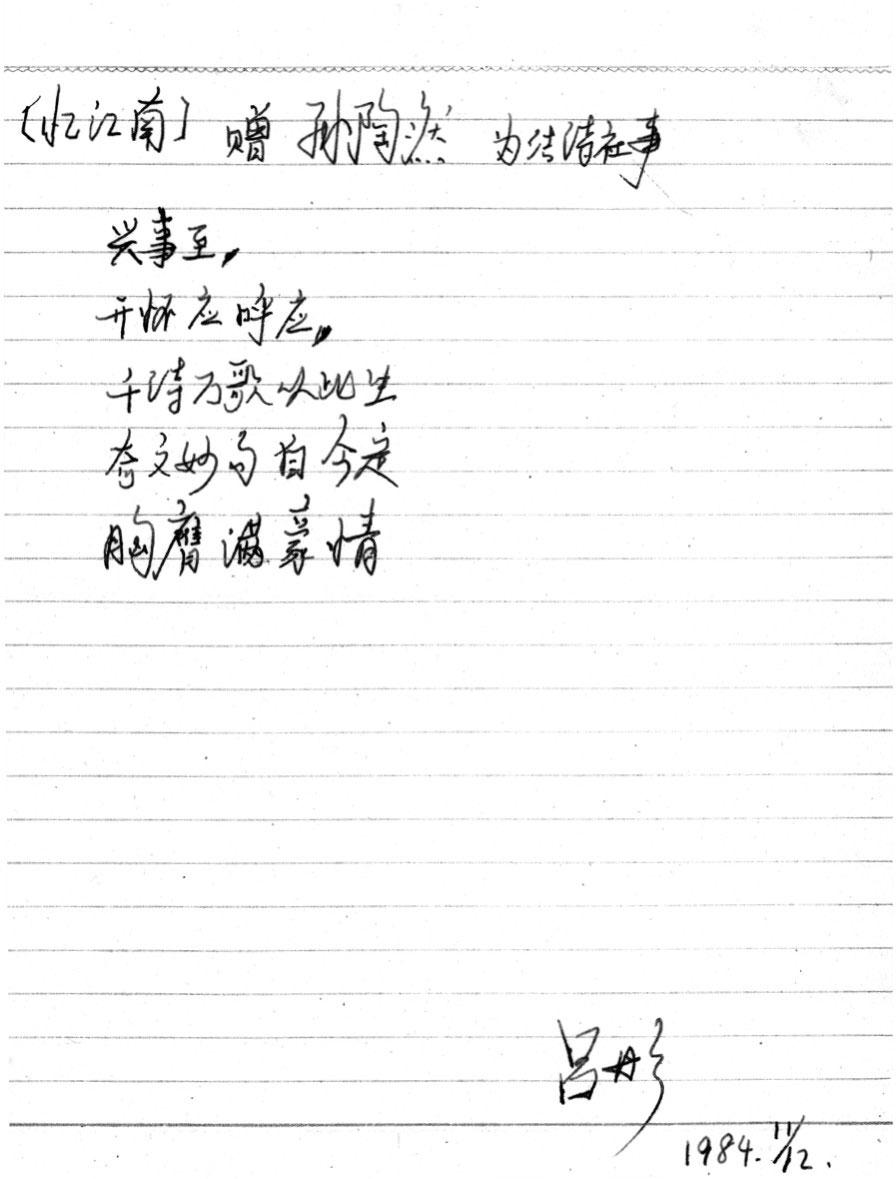 〔忆江南〕 赠 孙陶然 为结诗社事
兴事至,
开怀应呼应,
千诗万歌从此生
奇文妙句自今定
胸膺满豪情
吕彤
1984. 11/12.